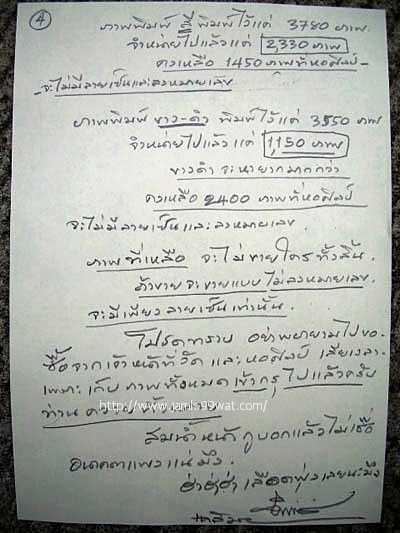 4
ภาพพิมพ์ สี พิมพ์ไว้แค่ 3780 ภาพ
จำหน่ายไปแล้วแค่ 2,330 ภาพ
คงเหลือ 1450 ภาพที่หอศิลป์
จะไม่มีลายเซ็นและลงหมายเลข
ภาพพิมพ์ ขาว-ดำ พิมพ์ไว้แค่ 3550 ภาพ
จำหน่ายไปแล้ว แค่ 1,150 ภาพ
ขาวดำ จะหายากมากกว่า
คงเหลือ 2400 ภาพที่หอศิลป์
จะไม่มีลายเซ็น และลงหมายเลข
ภาพที่เหลือ จะไม่ขายใครทั้งสิ้น.
ถ้าขายจะขายแบบไม่ลงหมายเลข.
จะมีเพียงลายเซ็นเท่านั้น.
โปรดทราบ อย่าพยายามไปขอ
ซื้อจากเจ้าหน้าที่วัด และหอศิลป์ เสียเวลา
เพราะเก็บภาพทั้งหมดเข้ากรุไปแล้วครับ
ท่าน
http://www.jamls99wat.com/
สมน้ำหน้า กูบอกแล้วไม่เชื่อ
อนาคตแพงแน่มึง.
ฮ่าฮ่าฮ่า เลือดพุ่งเลยนะมึง